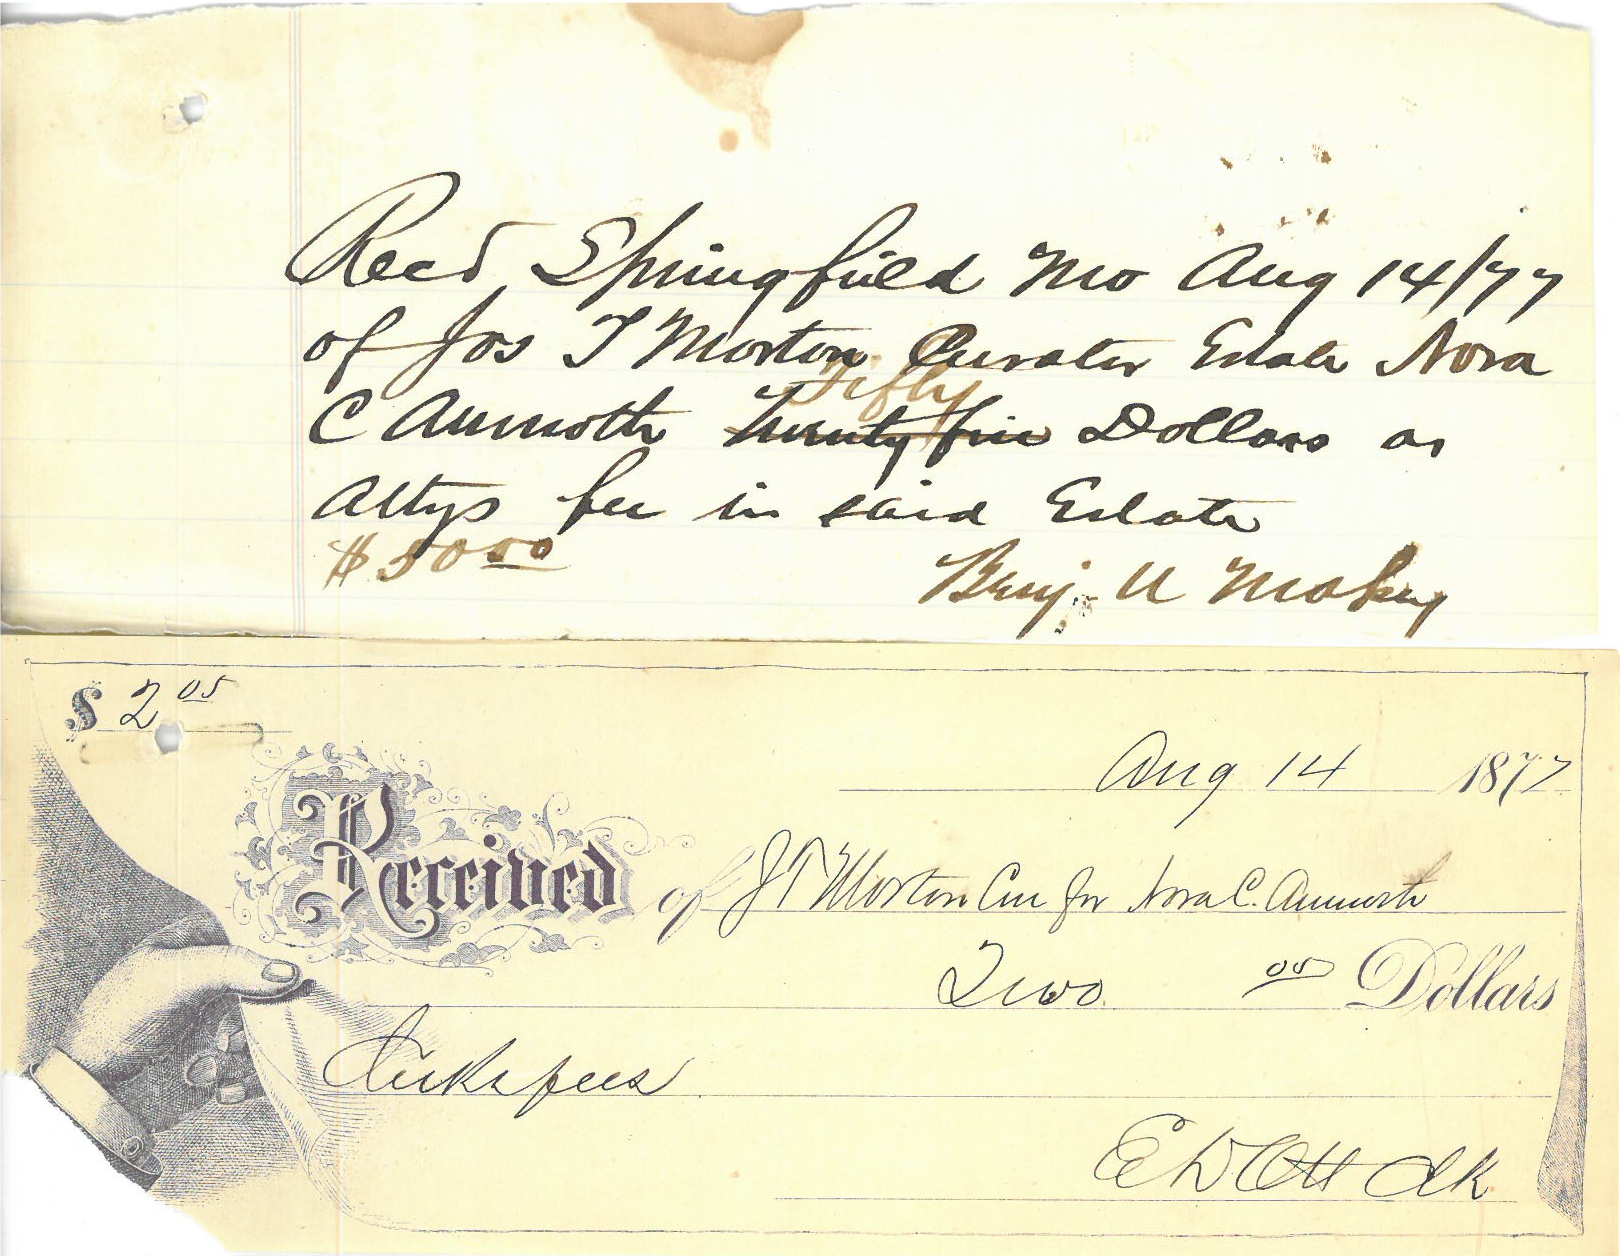 Recd Springfield Mo Aug 14/77
of Jos T Morton Curator Estate Nora
Fifty
C Aumoth Twenty five Dollars as
Attys fee in said Estate
$50 00
Benj. U Mabry
$ 2 05
Aug 14 1877
Received of J T Morton Cur for Nora C. Aumoth
Two 05 Dollars
Clerks fees
E D Ott Clk